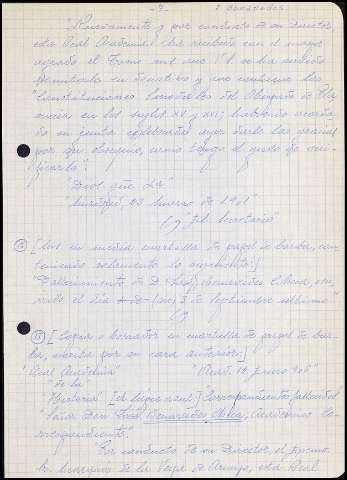 - 9 -
"Nuevamente y por conducto de su Director,
esta Real Academia ha recibido con el mayor
agrado el tomo que V. S. se ha servido
remitirle en donativo y que contiene las
"Constituciones Sinodales del Obispado de
en los siglos XV y XVI"; habiendo acorda-
do en junta celebrada ayer darle las gracias
por su obsequio, como tengo el gusto de veri-
ficarlo".
"Dios gue. a
"Madrid 23 marzo de 1901"
"El Secretario"
[en media cuartilla de papel de barba, con-
teniendo solamente lo siguiente:]
"Fallecimiento de D. José Benavides Checa, ocu-
rrido el día (sic) 3 de Septiembre último"
[Copia o borrador en cuartilla de papel de bar-
ba, escrita por su cara anterior:]
"Real Academia" "Madrid 12 Junio 906"
"de la"
"Historia" [a lápiz azul:] "Correspondientes fallecidos"
"Señor Don José Benavides Checa, Académico Co-
rrespondiente".
"Por conducto de su Director, el Excmo.
Sr. Marqués de la Vega de Armijo, esta Real